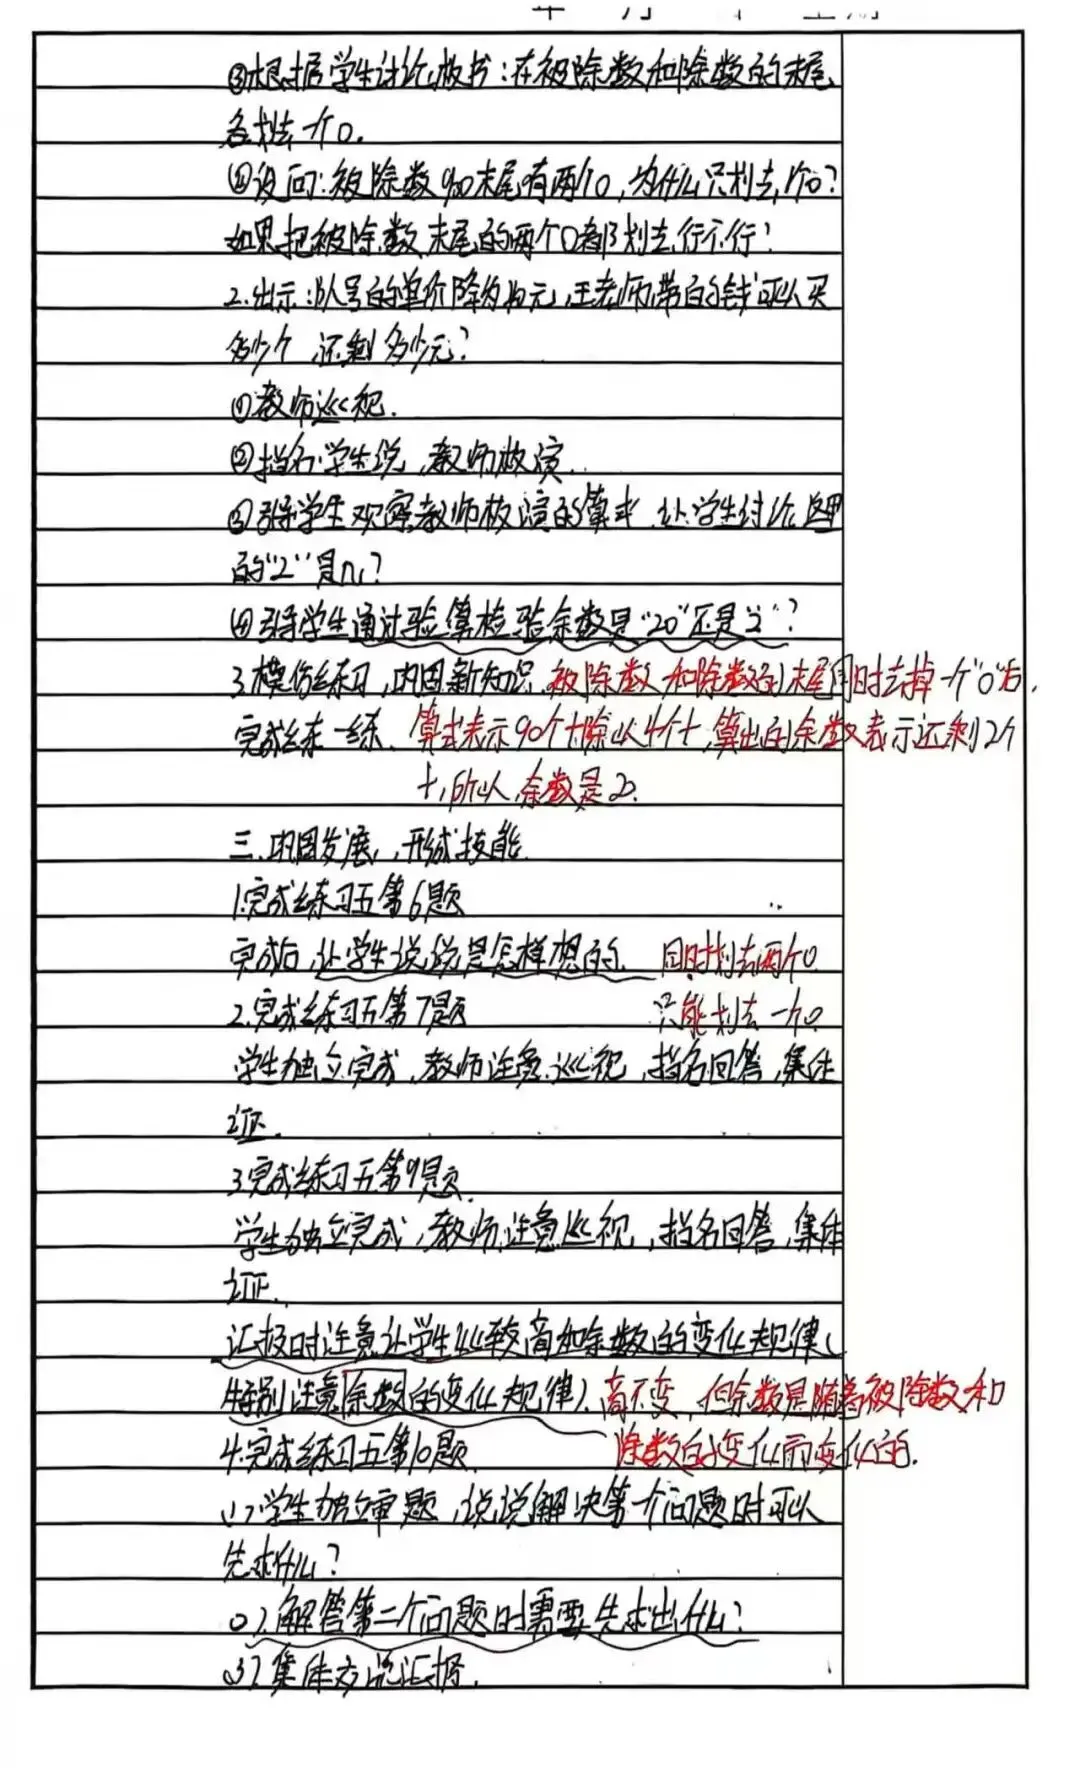 ③根据学生讨论板书:在被除数和除数的末尾
各划去一个0.
④设问:被除数900末尾有两个0,为什么只划去1个0?
如果把被除数末尾的两个0都划去行不行?
2.出示:队号的单价降为40元,王老师带的钱可以买
多少个 还剩多少元?
①教师巡视.
②指名学生说,教师板演.
③引导学生观察教师板演的算式,让学生讨论这里
的“2”是几?
④引导学生通过验算检验余数是“20”还是“2”?
3.模仿练习,巩固新知识.被除数和除数的末尾同时去掉一个“0”后,
完成练一练. 算式表示90个十除以4个十,算出的余数表示还剩2个
十,所以余数是20.
三.巩固发展,形成技能.
1.完成练习五第6题
完成后,让学生说说是怎样想的. 同时划去两个0.
2.完成练习五第7题 只能划去一个0.
学生独立完成,教师注意巡视,指名回答,集体
订正.
3.完成练习五第9题.
学生独立完成,教师注意巡视,指名回答,集体
订正.
汇报时注意让学生比较商和余数的变化规律(
特别注意余数的变化规律).商不变,但余数是随着被除数和
4.完成练习五第10题 除数的变化而变化的.
(1)学生独立审题,说说解决第一个问题时可以
先求什么?
(2)解答第二个问题时需要先求出什么?
(3)集体交流汇报.